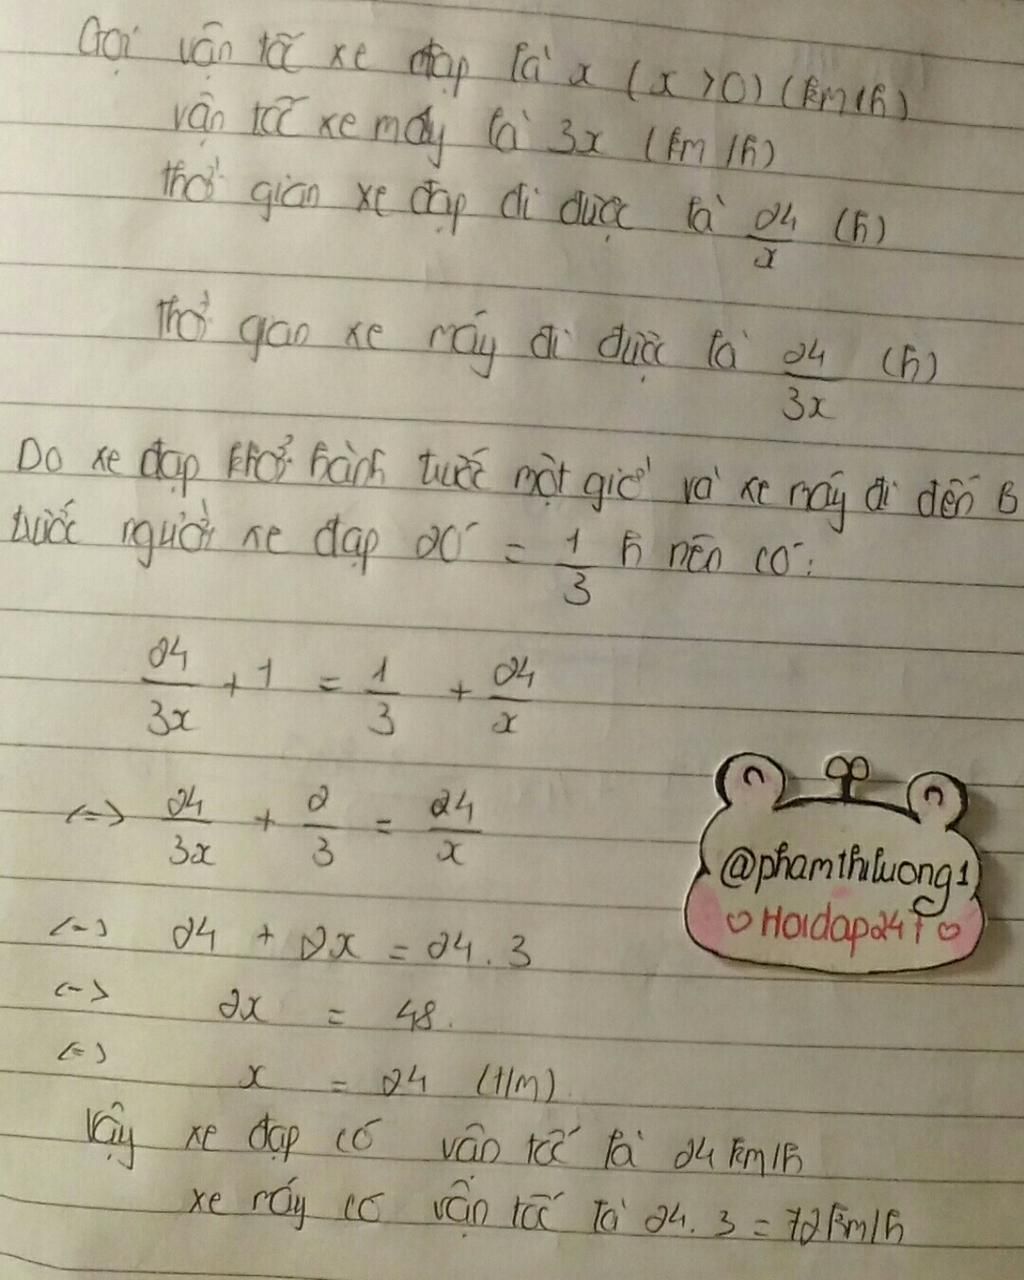 Gọi vận tốc xe đạp là x (x > 0) (km/h)
vận tốc xe máy là 3x (km/h)
thời gian xe đạp đi được là 24/x (h)
thời gian xe máy đi được là 24/3x (h)
Do xe đạp khởi hành trước một giờ và xe máy đi đến B
trước người xe đạp 20' = 1/3 h nên có:
24/3x + 1 = 1/3 + 24/x
<=> 24/3x + 2/3 = 24/x
<=> 24 + 2x = 24 . 3
<=> 2x = 48.
<=> x = 24 (t/m)
Vậy xe đạp có vận tốc là 24 km/h
xe máy có vận tốc là 24. 3 = 72 km/h
@phamthiluong1
♡ Hoidap247 ♡